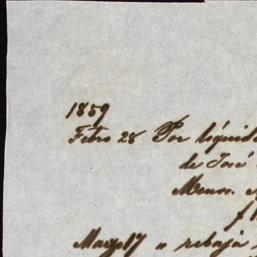 1859
Febro 28 Por líquido
de José
Menos.
Mayo 17 a rebaja